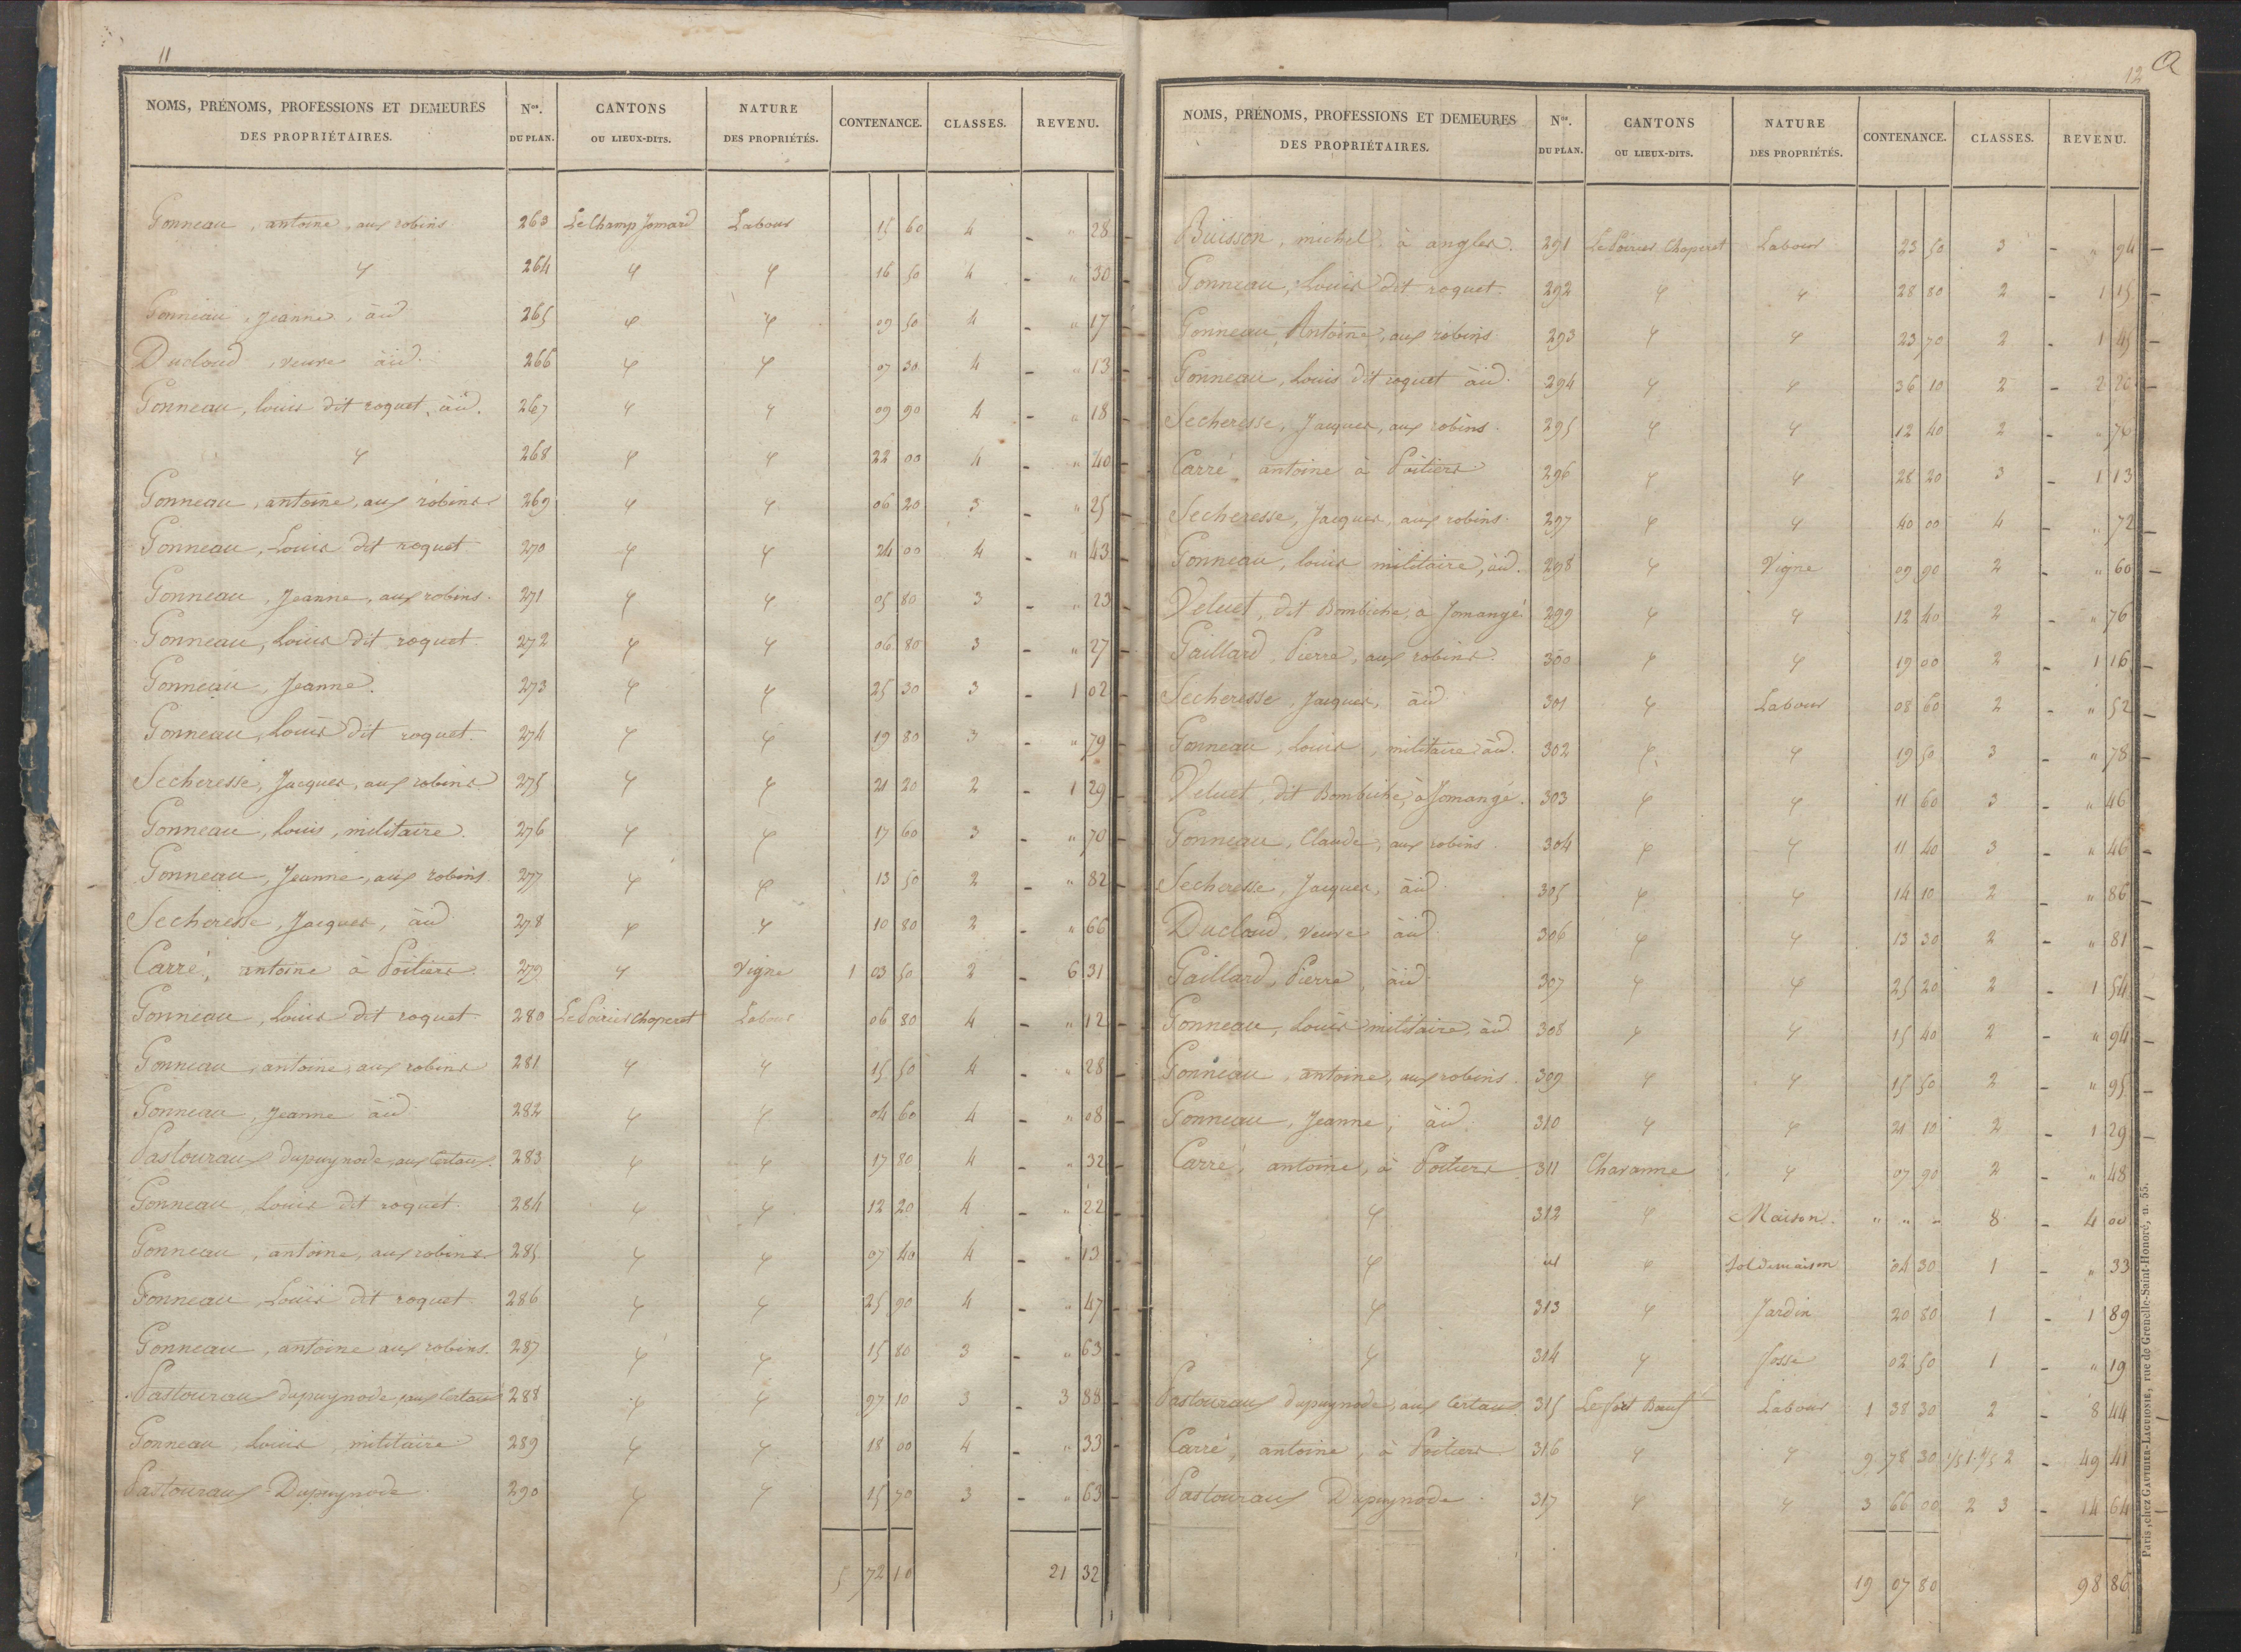 11
NOMS, PRÉNOMS, PROFESSIONS ET DEMEURES DES PROPRIÉTAIRES. Nos. DU PLAN. CANTONS OU LIEUX-DITS. NATURE DES PROPRIÉTÉS. CONTENANCE. CLASSES. REVENU.
Gonneau, antoine, aux robins 263 Le Champ Jomard Labour 15 60 4 - " 28
φ 264 φ φ 16 50 4 - " 30
Gonneau, Jeanne, aud 265 φ φ 09 50 4 - " 17
Ducloud, veuve aud. 266 φ φ 07 30 4 - " 13
Gonneau, louis dit roquet, aud. 267 φ φ 09 90 4 - " 18
φ 268 φ φ 22 00 4 - " 40
Gonneau, antoine, aux robins 269 φ φ 06 20 3 - " 25
Gonneau, Louis dit roquet 270 φ φ 24 00 4 - " 43
Gonneau, Jeanne, aux robins. 271 φ φ 05 80 3 - " 23
Gonneau, Louis dit roquet 272 φ φ 06 80 3 - " 27
Gonneau, Jeanne. 273 φ φ 25 30 3 - 1 02
Gonneau, Louis dit roquet. 274 φ φ 19 80 3 - " 79
Secheresse, Jacques, aux robins 275 φ φ 21 20 2 - 1 29
Gonneau, Louis, militaire. 276 φ φ 17 60 3 - " 70
Gonneau, Jeanne, aux robins. 277 φ φ 13 50 2 - " 82
Secheresse, Jacques, aud 278 φ φ 10 80 2 - " 66
Carré, antoine à Poitiers 279 φ Vigne 1 03 50 2 - 6 31
Gonneau, Louis dit roquet. 280 Le Poirier Choperet Labour 06 80 4 - " 12
Gonneau, antoine, aux robins 281 φ φ 15 50 4 - " 28
Gonneau, Jeanne aud 282 φ φ 04 60 4 - " 08
Pastouraux dupuynode, aux tertaux. 283 φ φ 17 80 4 - " 32
Gonneau, Louis dit roquet. 284 φ φ 12 20 4 - " 22
Gonneau, antoine, aux robins. 285 φ φ 07 40 4 - " 13
Gonneau, Louis dit roquet 286 φ φ 25 90 4 - " 47
Gonneau, antoine aux robins. 287 φ φ 15 80 3 - " 63
Pastouraux dupuynode, aux tertaux 288 φ φ 97 10 3 - 3 88
Gonneau, Louis, militaire 289 φ φ 18 00 4 - " 33
Pastouraux Dupuynode. 290 φ φ 15 70 3 - " 63
5 72 10 21 32
12 a
NOMS, PRÉNOMS, PROFESSIONS ET DEMEURES DES PROPRIÉTAIRES. Nos. DU PLAN. CANTONS OU LIEUX-DITS. NATURE DES PROPRIÉTÉS. CONTENANCE. CLASSES. REVENU.
Buisson, michel à angles. 291 Le Poirier Choperet Labour 23 50 3 - " 94
Gonneau, Louis dit roquet. 292 φ φ 28 80 2 - 1 15
Gonneau, Antoine, aux robins 293 φ φ 23 70 2 - 1 45
Gonneau, Louis dit roquet aud. 294 φ φ 36 10 2 - 2 20
Secheresse, Jacques, aux robins. 295 φ φ 12 40 2 - " 76
Carré, antoine à Poitiers 296 φ φ 28 20 3 - 1 13
Secheresse, Jacques, aux robins. 297 φ φ 40 00 4 - " 72
Gonneau, louis militaire, aud. 298 φ Vigne 09 90 2 - " 60
Veluet, dit Bombiche, à Jomangé 299 φ φ 12 40 2 - " 76
Gaillard, Pierre, aux robins. 300 φ φ 19 00 2 - 1 16
Secheresse, Jacques, aud 301 φ Labour 08 60 2 - " 52
Gonneau, Louis, militaire aud. 302 φ φ 19 50 3 - " 78
Veluet, dit Bombiche, à Jomangé. 303 φ φ 11 60 3 - " 46
Gonneau, Claude, aux robins. 304 φ φ 11 40 3 - " 46
Secheresse, Jacques, aud 305 φ φ 14 10 2 - " 86
Ducloud, veuve aud 306 φ φ 13 30 2 - " 81
Gaillard, Pierre, aud 307 φ φ 25 20 2 - 1 54
Gonneau, Louis militaire, aud 308 φ φ 15 40 2 - " 94
Gonneau, antoine, aux robins. 309 φ φ 15 50 2 - " 95
Gonneau, Jeanne, aud 310 φ φ 21 10 2 - 1 29
Carré, antoine, à Poitiers 311 Charanne φ 07 90 2 - " 48
φ 312 φ Maison. " " " 8 - 4 00
φ id φ Sol de maison 04 30 1 - " 33
φ 313 φ Jardin 20 80 1 - 1 89
φ 314 φ fosse 02 50 1 - " 19
Pastouraux dupuynode, aux tertaux. 315 Le fort Bœuf Labour 1 38 30 2 - 8 44
Carré, antoine, à Poitiers. 316 φ φ 9 78 30 1/5 1. 4/5 2 - 49 41
Pastouraux Dupuynode. 317 φ φ 3 66 00 2 3 - 14 64
19 07 80 98 86
Paris, chez GAUTHIER-LAGUIONIE, rue de Grenelle-Saint-Honoré, n. 55.